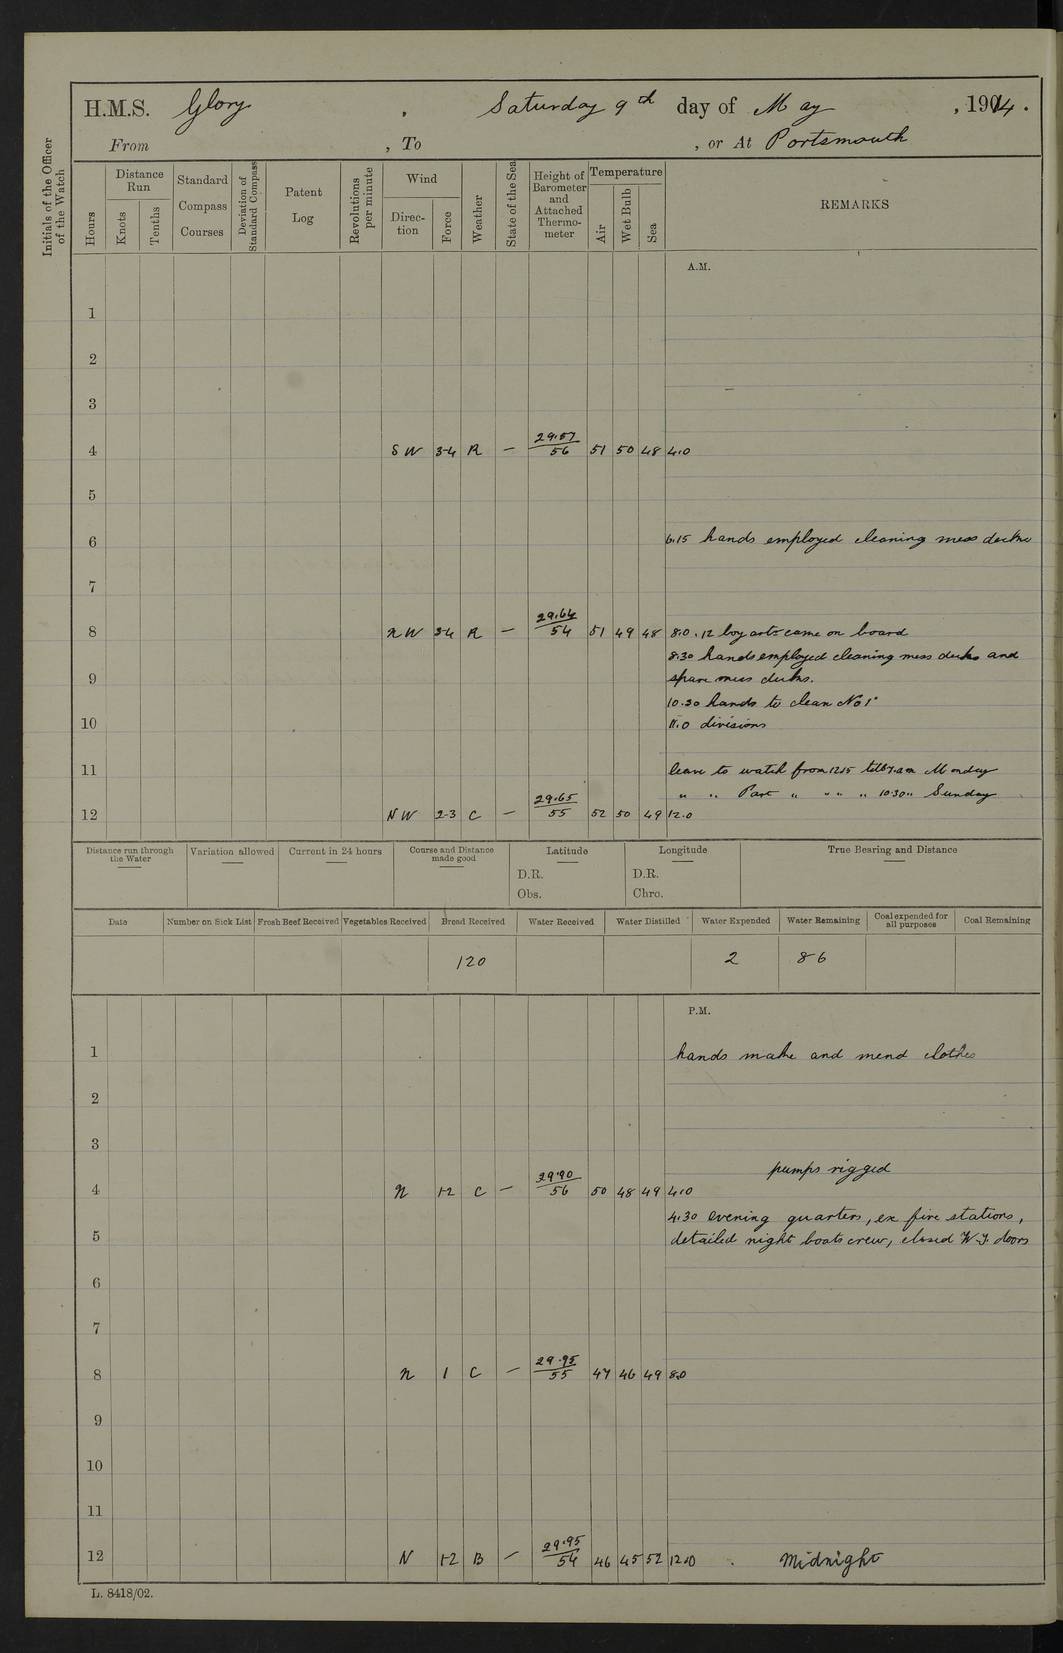 H.M.S. Glory, Saturday 9th day of May, 1914.
From , To , or At Portsmouth
Initials of the Officer of the Watch
Hours
Distance Run
Knots
Tenths
Standard Compass Courses
Deviation of Standard Compass
Patent Log
Revolutions per minute
Wind
Direc-tion
Force
Weather
State of the Sea
Height of Barometer and Attached Thermo-meter
Temperature
Air
Wet Bulb
Sea
REMARKS
A.M.
1
2
3
4 SW 3-4 R — 29.57/56 51 50 48 4.0
5
6 6.15 hands employed cleaning mess decks
7
8 NW 3-4 R — 29.64/54 51 49 48 8.0. 12 boy arts came on board
8.30 hands employed cleaning mess decks and
9 spare mess decks.
10.30 hands to clean No 1s
10 11.0 divisions
11 leave to watch from 1215 till 7.am Monday
" " Part " " " " 10.30 " Sunday
12 NW 2-3 C — 29.65/55 52 50 49 12.0
Distance run through the Water
Variation allowed
Current in 24 hours
Course and Distance made good
Latitude
D.R.
Obs.
Longitude
D.R.
Chro.
True Bearing and Distance
Date
Number on Sick List
Fresh Beef Received
Vegetables Received
Bread Received
Water Received
Water Distilled
Water Expended
Water Remaining
Coal expended for all purposes
Coal Remaining
120 2 86
P.M.
1 hands make and mend clothes
2
3
pumps rigged
4 N 1-2 C — 29.90/56 50 48 49 4.0
4.30 evening quarters, ex fire stations,
5 detailed night boats crew, closed W.T. doors
6
7
8 N 1 C — 29.95/55 47 46 49 8.0
9
10
11
12 N 1-2 B — 29.95/54 46 45 52 12.0 Midnight
L. 8418/02.